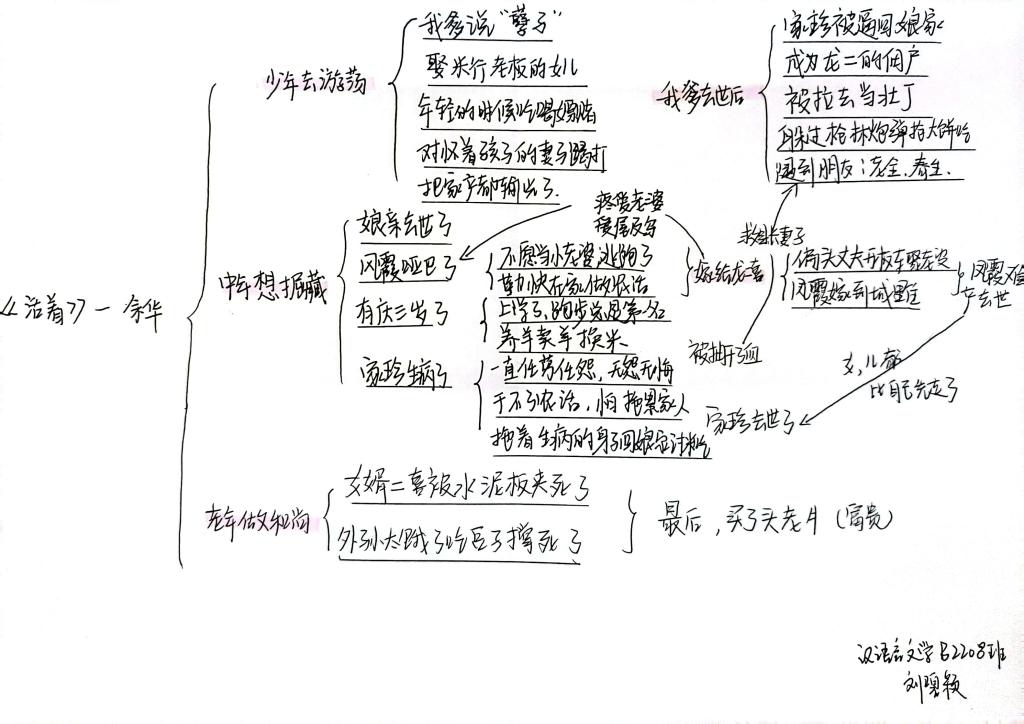 《活着》—余华
少年去游荡
我爹说“孽子”
娶米行老板的女儿
年轻的时候吃喝嫖赌
对怀着孩子的妻子踢打
把家产都输光了.
我爹去世后
家珍被逼回娘家
成为龙二的佃户
被拉去当壮丁
躲过枪林炮弹抢大饼吃
遇到朋友：老全.春生.
中年想掘藏
娘亲去世了
凤霞哑巴了
有庆三岁了
家珍生病了
疼爱老婆
不愿当小老婆逃跑了
勤快在家做农活
上学了,跑步总是第一名
养羊卖羊换米.
一直任劳任怨,无怨无悔
干不了农活,怕拖累家人
拖着生病的身子回娘家讨米吃
嫁给龙喜
偏头丈夫
凤霞嫁到城里去
凤霞难产去世
女,儿都
比自己先走了
家珍去世了
老年做和尚
女婿二喜被水泥板夹死了
外孙太饿了吃豆子撑死了
最后,买了头老牛(富贵)
汉语言文学B2208班